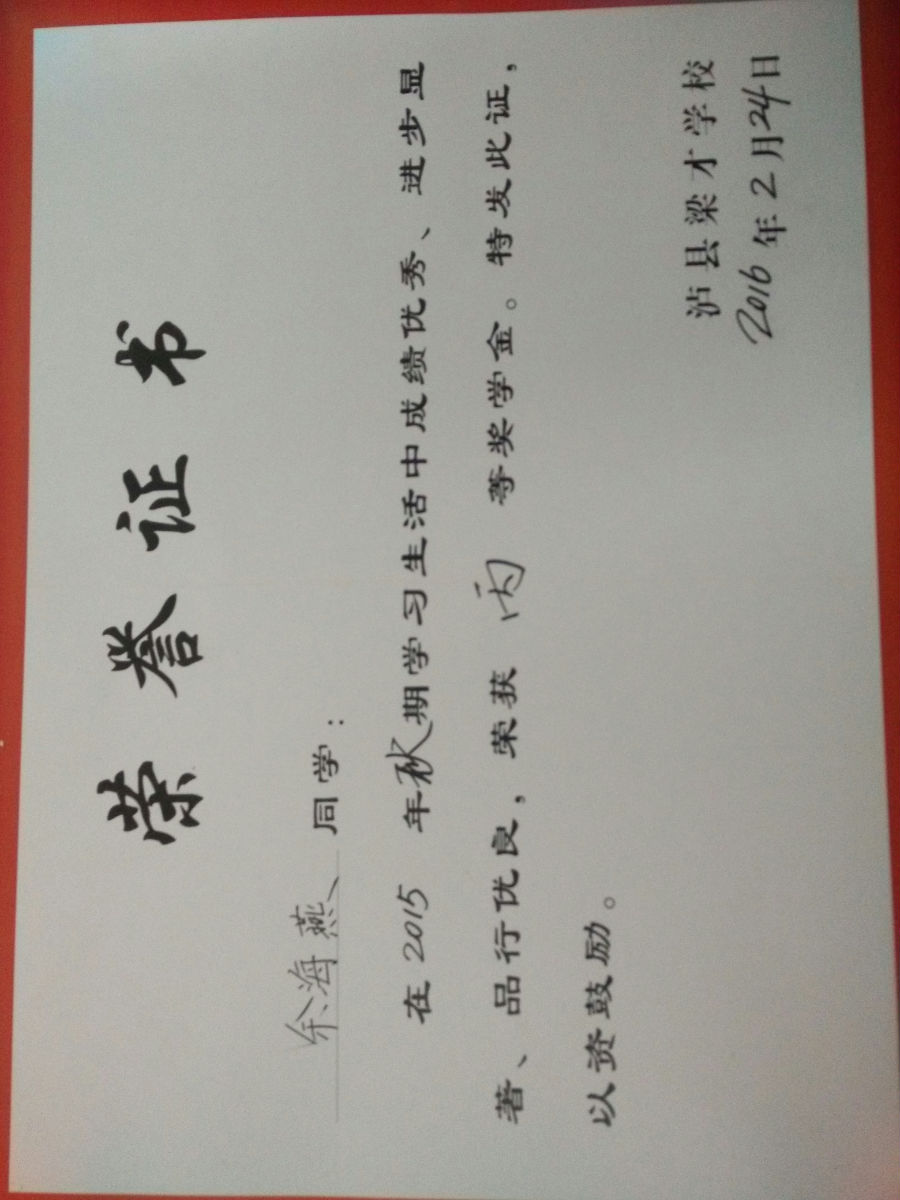 荣誉证书
余海燕 同学：
在 2015 年秋期学习生活中成绩优秀、进步显
著、品行优良，荣获 丙 等奖学金。特发此证，
以资鼓励。
泸县梁才学校
2016年2月24日